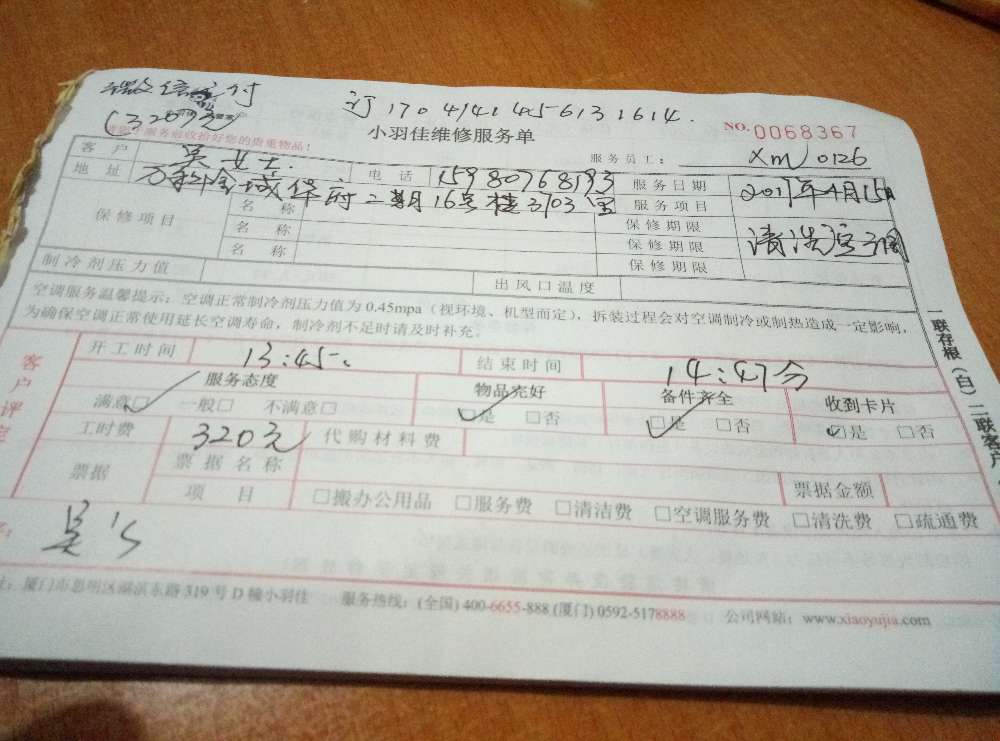 微信支付 订1704141456131614.
(320元)
小羽佳维修服务单 NO.0068367
请您于服务前收拾好您的贵重物品! 服务员工: xm 0126
客户 吴女士 电话 15980768193 服务日期 2017年4月15日
地址 万科金域华府二期16号楼3703室 服务项目 清洗空调
保修项目 名称 保修期限
名称 保修期限
名称 保修期限
制冷剂压力值 出风口温度
空调服务温馨提示:空调正常制冷剂压力值为0.45mpa(视环境、机型而定),拆装过程会对空调制冷或制热造成一定影响,
为确保空调正常使用延长空调寿命,制冷剂不足时请及时补充。
客户评定
开工时间 13:45 结束时间 14:47分
服务态度 物品完好 备件齐全 收到卡片
满意☑ 一般□ 不满意□ ☑是 □否 ☑是 □否 ☑是 □否
工时费 320元 代购材料费
票据 票据名称 票据金额
项目 □搬办公用品 □服务费 □清洁费 □空调服务费 □清洗费 □疏通费
吴
厦门市思明区湖滨东路319号D幢小羽佳 服务热线:(全国)400-6655-888 (厦门)0592-5178888 公司网站:www.xiaoyujia.com
一联存根(白) 二联客户